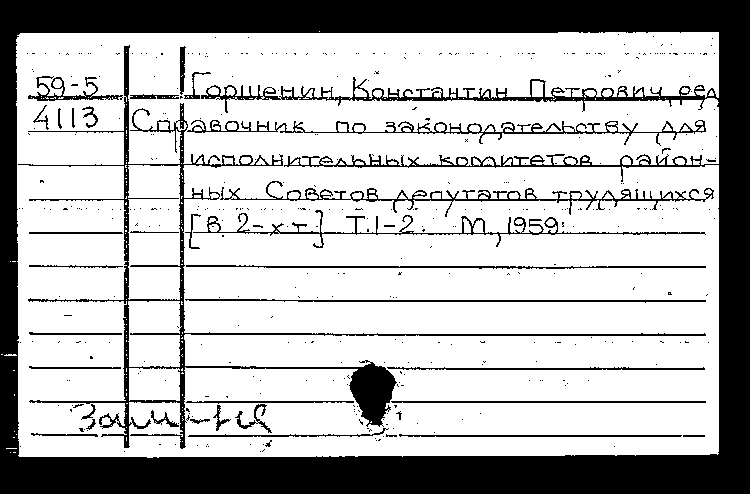 59-5 Горшенин, Константин Петрович, ред
4113 Справочник по законодательству для
исполнительных комитетов район-
ных Советов депутатов трудящихся
[в 2-х т.] Т.1-2. М., 1959.